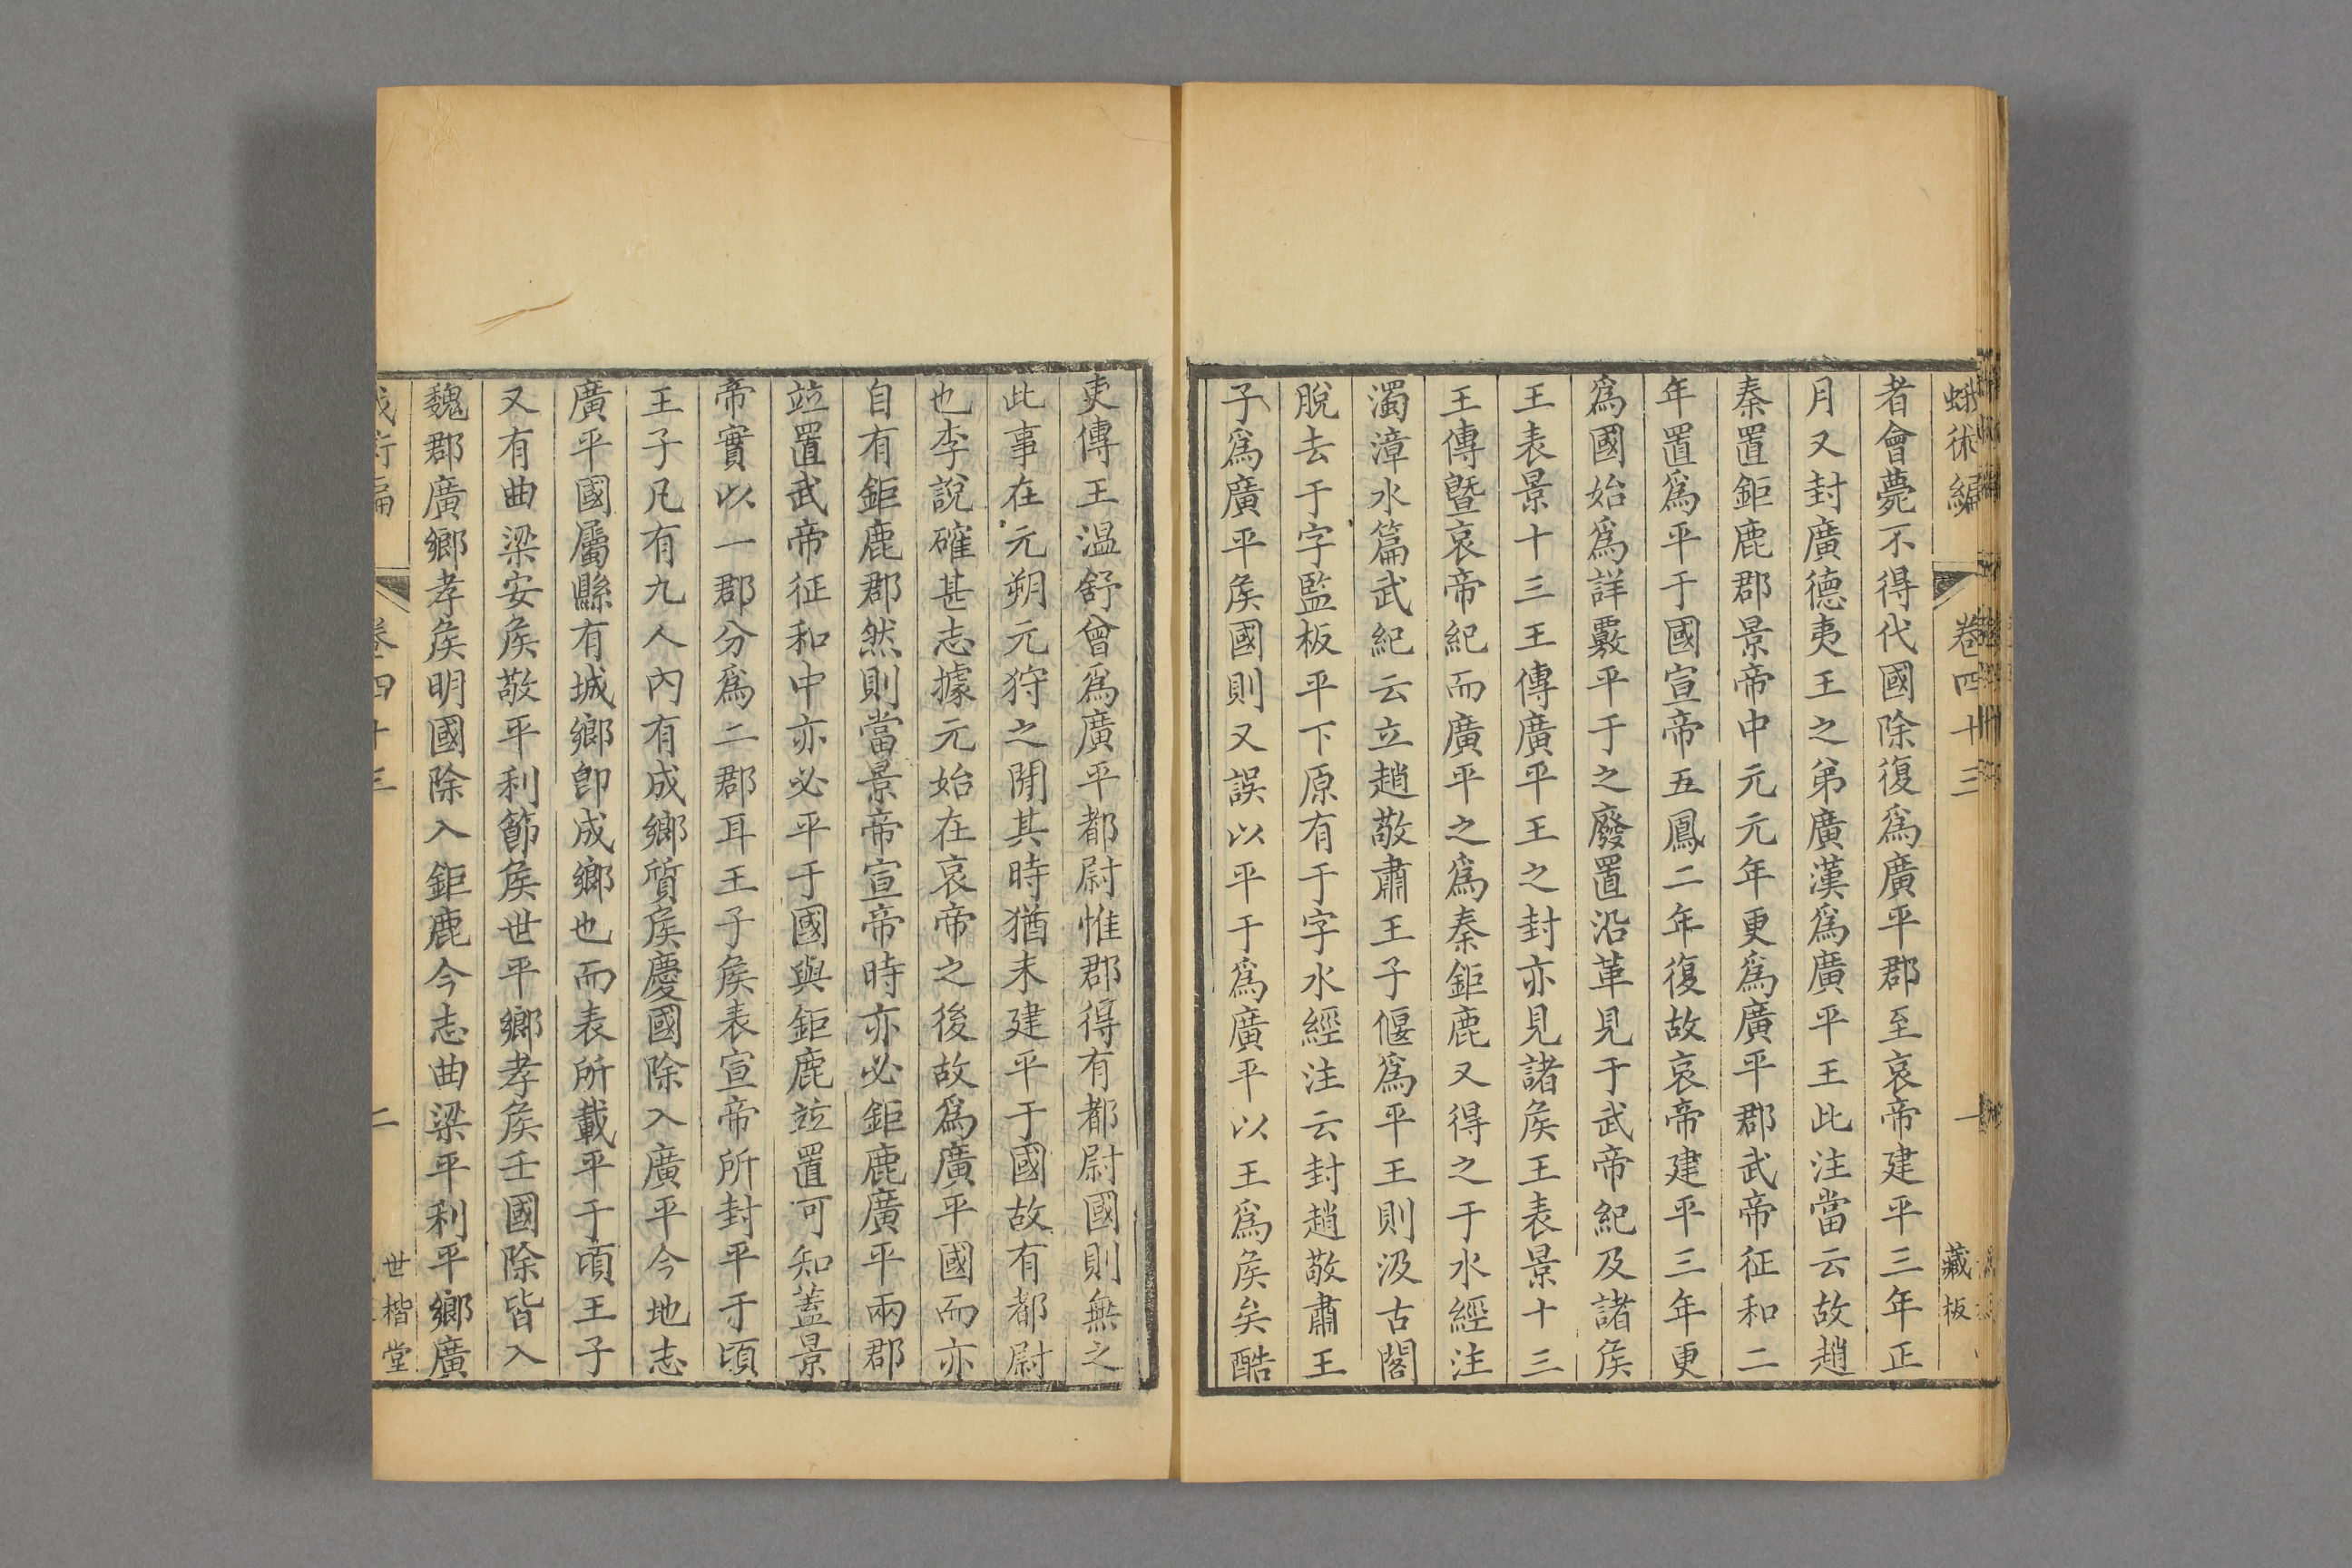 蛾術編 卷四十三 一 藏板
者會薨不得代國除復爲廣平郡至哀帝建平三年正
月又封廣德夷王之弟廣漢爲廣平王此注當云故趙
秦置鉅鹿郡景帝中元元年更爲廣平郡武帝征和二
年置爲平于國宣帝五鳳二年復故哀帝建平三年更
爲國始爲詳覈平于之廢置沿革見于武帝紀及諸矦
王表景十三王傳廣平王之封亦見諸矦王表景十三
王傳曁哀帝紀而廣平之爲秦鉅鹿又得之于水經注
濁漳水篇武紀云立趙敬肅王子偃爲平王則汲古閣
脫去于字監板平下原有于字水經注云封趙敬肅王
子爲廣平矦國則又誤以平于爲廣平以王爲矦矣酷
吏傳王温舒曾爲廣平都尉惟郡得有都尉國則無之
此事在元朔元狩之閒其時猶未建平于國故有都尉
也李說確甚志據元始在哀帝之後故爲廣平國而亦
自有鉅鹿郡然則當景帝宣帝時亦必鉅鹿廣平兩郡
竝置武帝征和中亦必平于國與鉅鹿竝置可知蓋景
帝實以一郡分爲二郡耳王子矦表宣帝所封平于頃
王子凡有九人內有成鄉質矦慶國除入廣平今地志
廣平國屬縣有城鄉卽成鄉也而表所載平于頃王子
又有曲梁安矦敬平利節矦世平鄉孝矦壬國除皆入
魏郡廣鄉孝矦明國除入鉅鹿今志曲梁平利平鄉廣
卷四十三 二 世楷堂